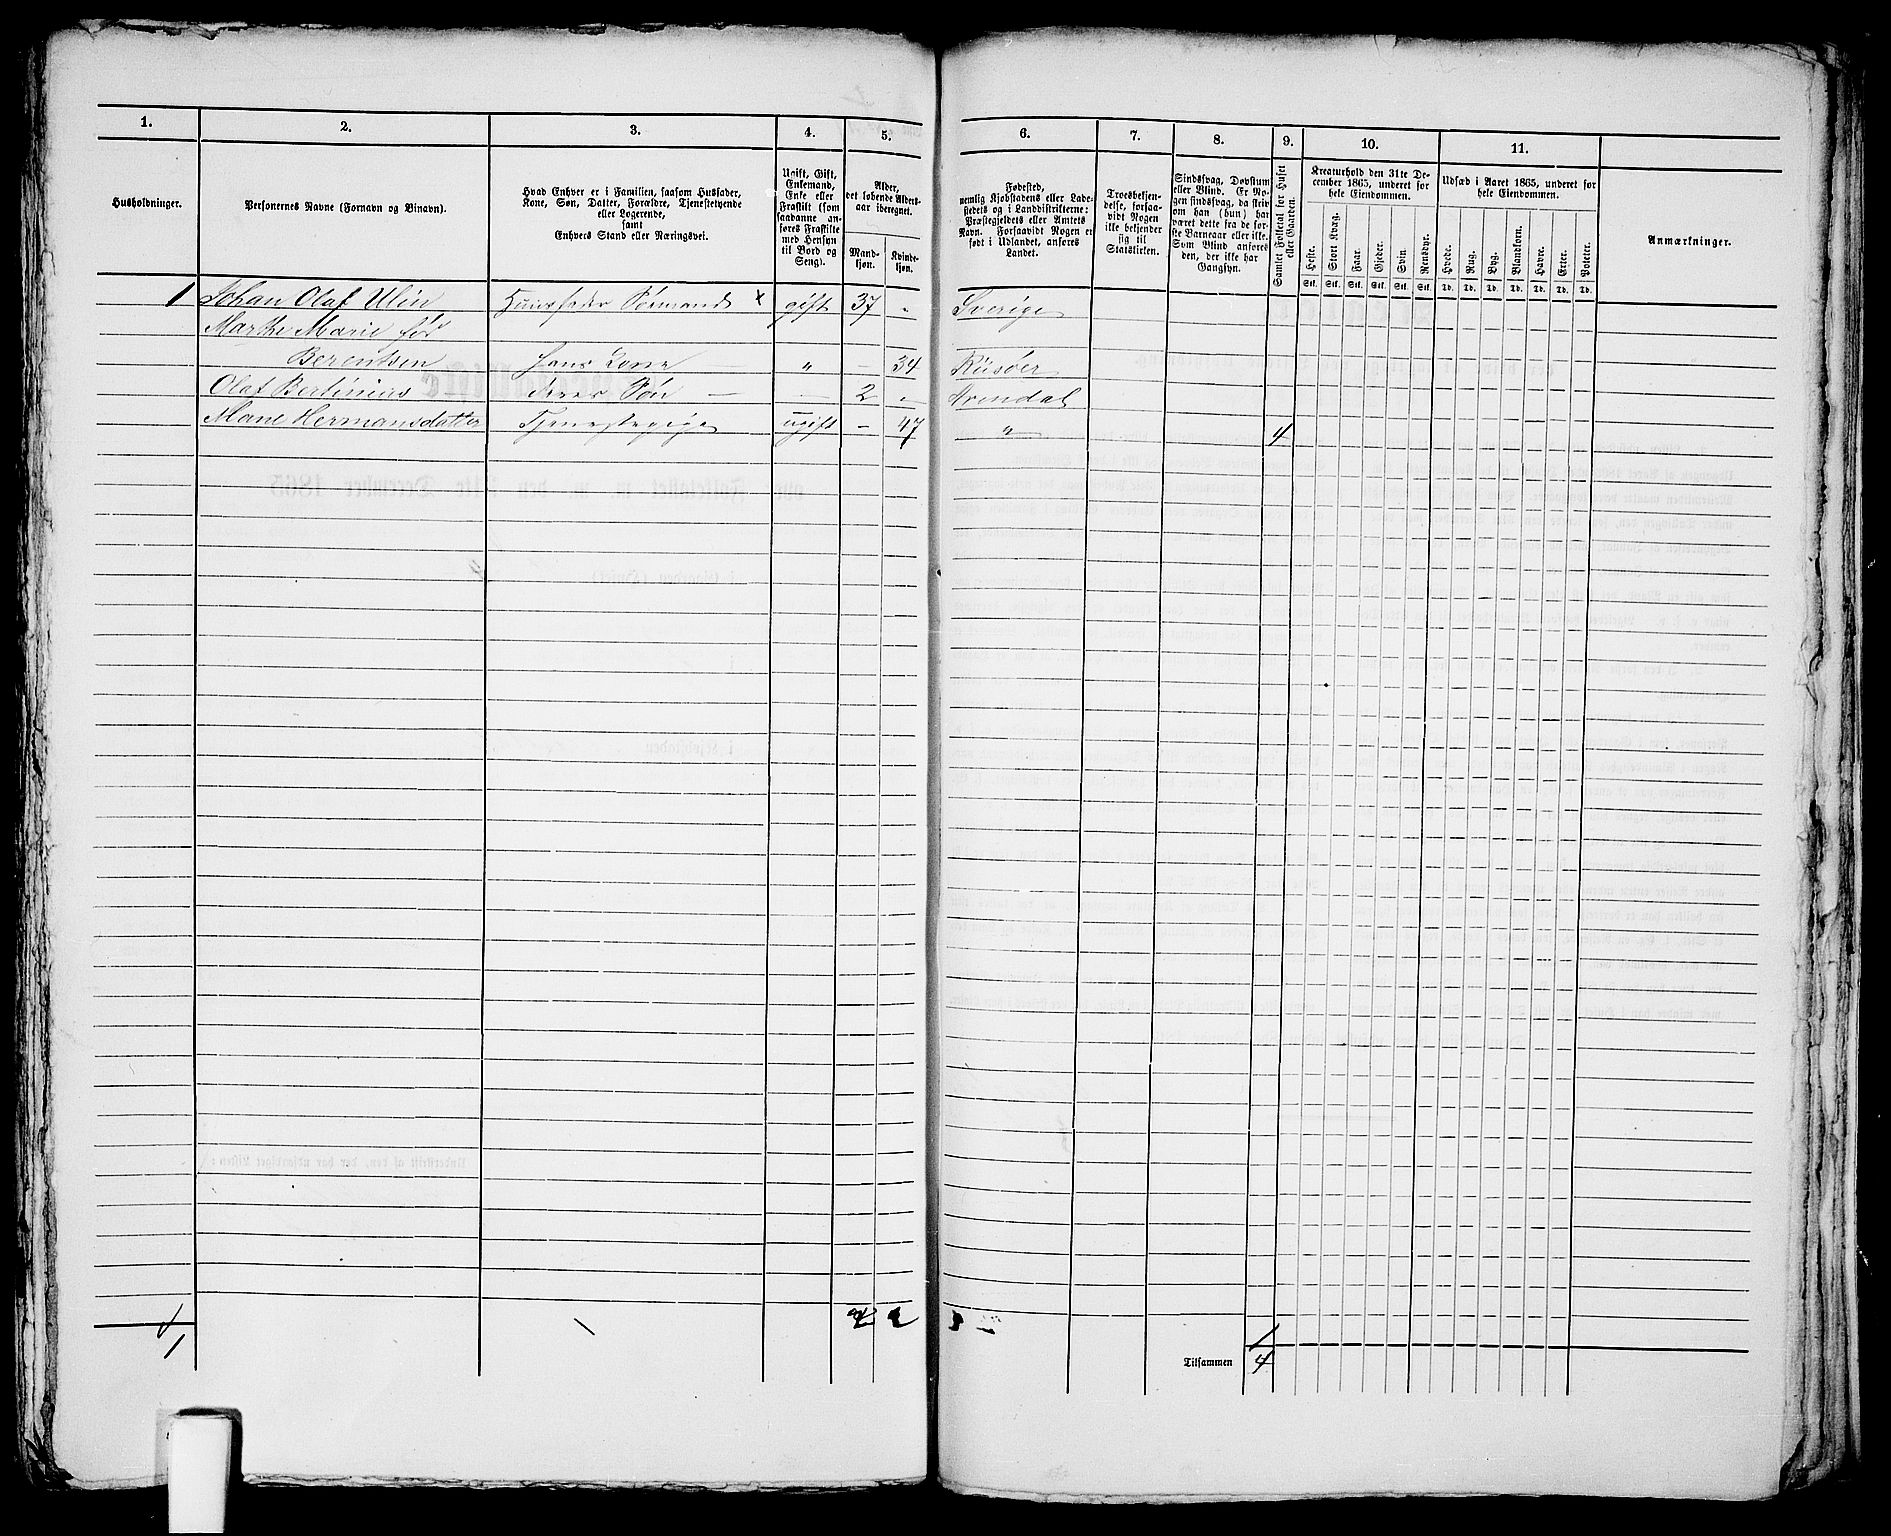 1.
2.
3.
4.
5.
Husholdninger.
Personernes Navne (Fornavn og Binavn).
Hvad Enhver er i Familien, saasom Husfader,
Kone, Søn, Datter, Forældre, Tjenestetyende
eller Logerende,
samt
Enhvers Stand eller Næringsvei.
Ugift, Gift,
Enkemand,
Enke eller
Fraskilt (som
saadanne an-
føres Fraskilte
med Hensyn
til Bord og
Seng).
Alder,
det løbende Alders-
aar iberegnet.
Mand-
kjøn.
Kvinde-
kjøn.
1 Johan Olaf Ulin Huusfader Sømand x gift 37 "
Marthe Marie før
Berentsen hans Kone — " — 34
Olaf Bertinius deres Søn — — 2 —
Mane Hermansdatter Tjenestepige ugift — 47
1
6.
7.
8.
9.
10.
11.
Fødested,
nemlig Kjøbstadens eller Lade-
stedets og i Landdistrikterne:
Præstegjeldets eller Amtets
Navn. Forsaavidt Nogen er
født i Udlandet, anføres
Landet.
Troesbekjen-
delse, forsaa-
vidt Nogen
ikke bekjender
sig til
Statskirken.
Sindssvag, Døvstum
eller Blind. Er No-
gen sindssvag, da skriv
om han (hun) har
været dette fra de før-
ste Barneaar eller ikke.
Som Blind anføres
den, der ikke har
Gangsyn.
Samlet Folketal for Huset
eller Gaarden.
Kreaturhold den 31te De-
cember 1865, underet for
hele Eiendommen.
Heste.
Stort Kvæg.
Faar.
Gjeder.
Svin.
Rensdyr.
Stk. Stk. Stk. Stk. Stk. Stk.
Udsæd i Aaret 1865, underet for
hele Eiendommen.
Hvede.
Rug.
Byg.
Blandkorn.
Havre.
Erter.
Poteter.
Td. Td. Td. Td. Td. Td. Td.
Anmærkninger.
Sverige
Risøer
Arendal
" 4
Tilsammen 4